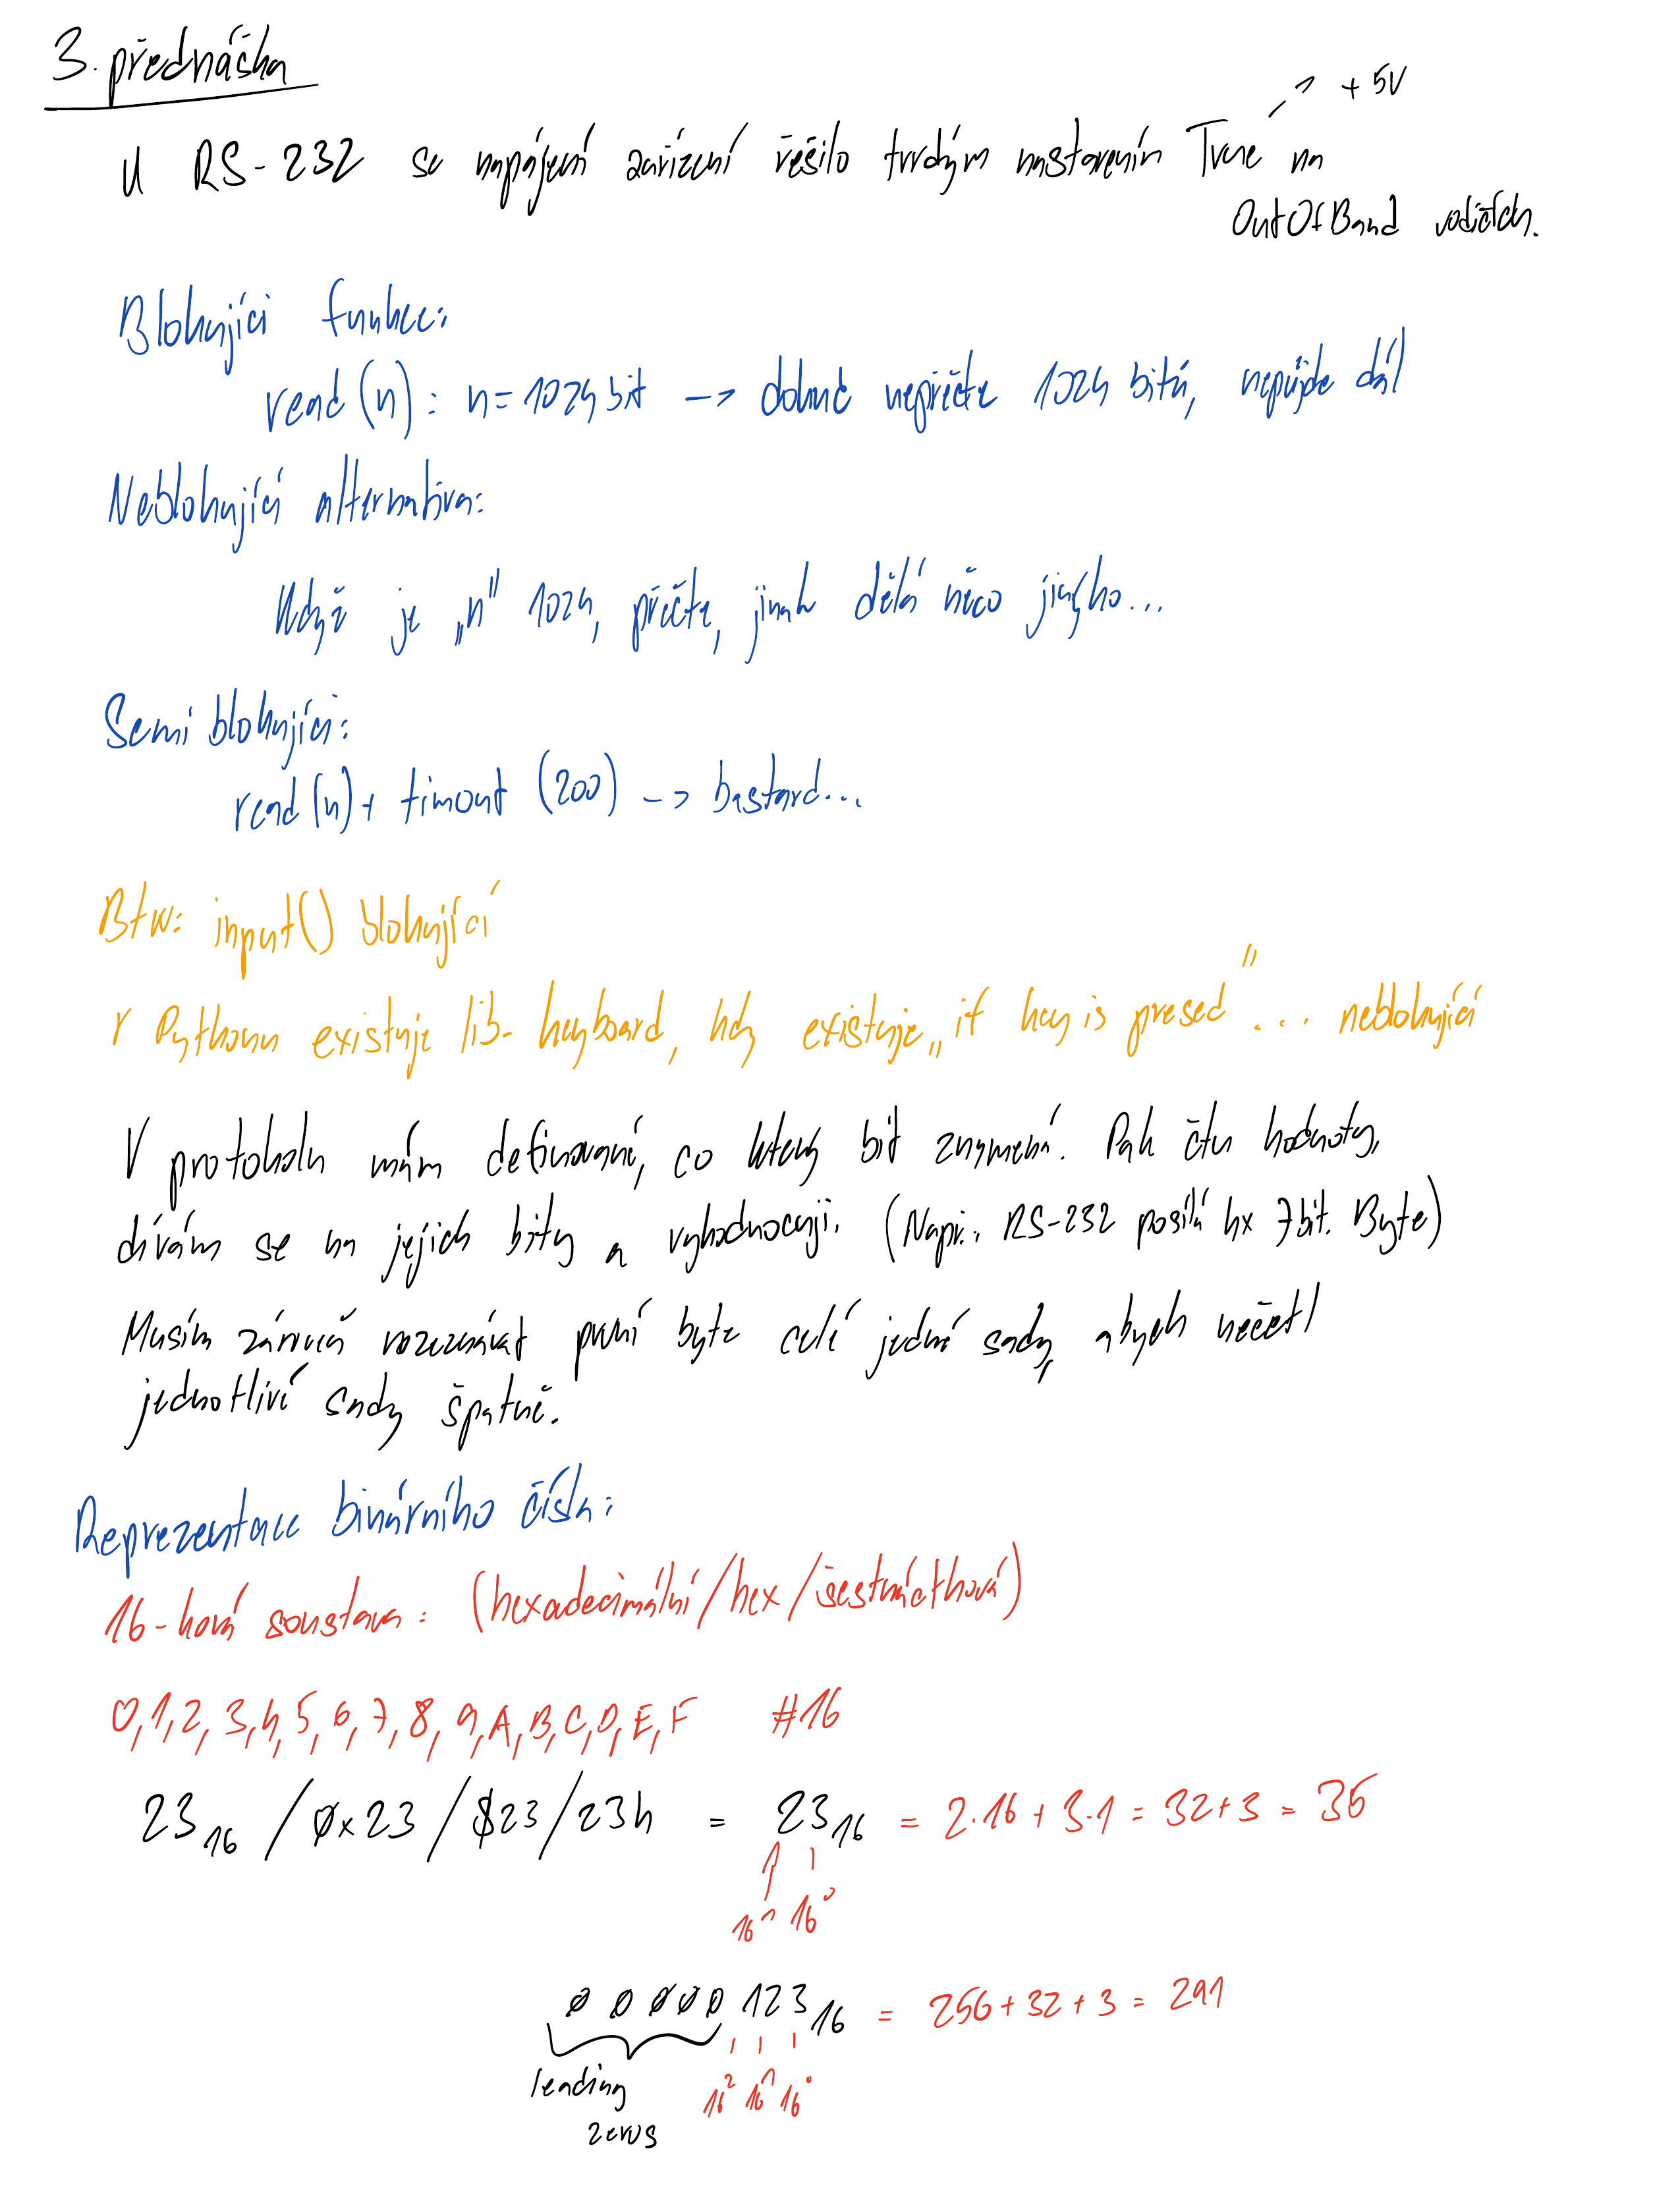 3. přednáška
→ +5V
U RS-232 se napájení zařízení řešilo tvrdým nastavením True na
OutOfBand vodičích.
Blokující funkce:
read(n): n=1024 bit -> dokud nepřečte 1024 bitů, nepůjde dál
Neblokující alternativa:
Když je „n" 1024, přečte, jinak dělá něco jiného...
Semi blokující:
read(n)+ timout (200) -> bastard...
Btw: input() blokující
V Pythonu existuje lib- keyboard, kdy existuje „if key is presed" ... neblokující
V protokolu mám definované, co který bit znamená. Pak čtu hodnoty,
dívám se na jejich bity a vyhodnocuji. (Např.: RS-232 posílá 4x 7bit. Byte)
Musím zároveň rozeznávat první byte celé jedné sady, abych nečetl
jednotlivé sady špatně.
Reprezentace binárního čísla:
16-ková soustava: (hexadecimální/hex/šestnáctková)
0,1,2,3,4,5,6,7,8,9,A,B,C,D,E,F #16
23₁₆ / 0x23 / $23 / 23h = 23₁₆ = 2·16 + 3·1 = 32+3 = 35
16¹ 16⁰
0 0 0 0 0 1 2 3₁₆ = 256 + 32 + 3 = 291
16² 16¹ 16⁰
leading
zeros